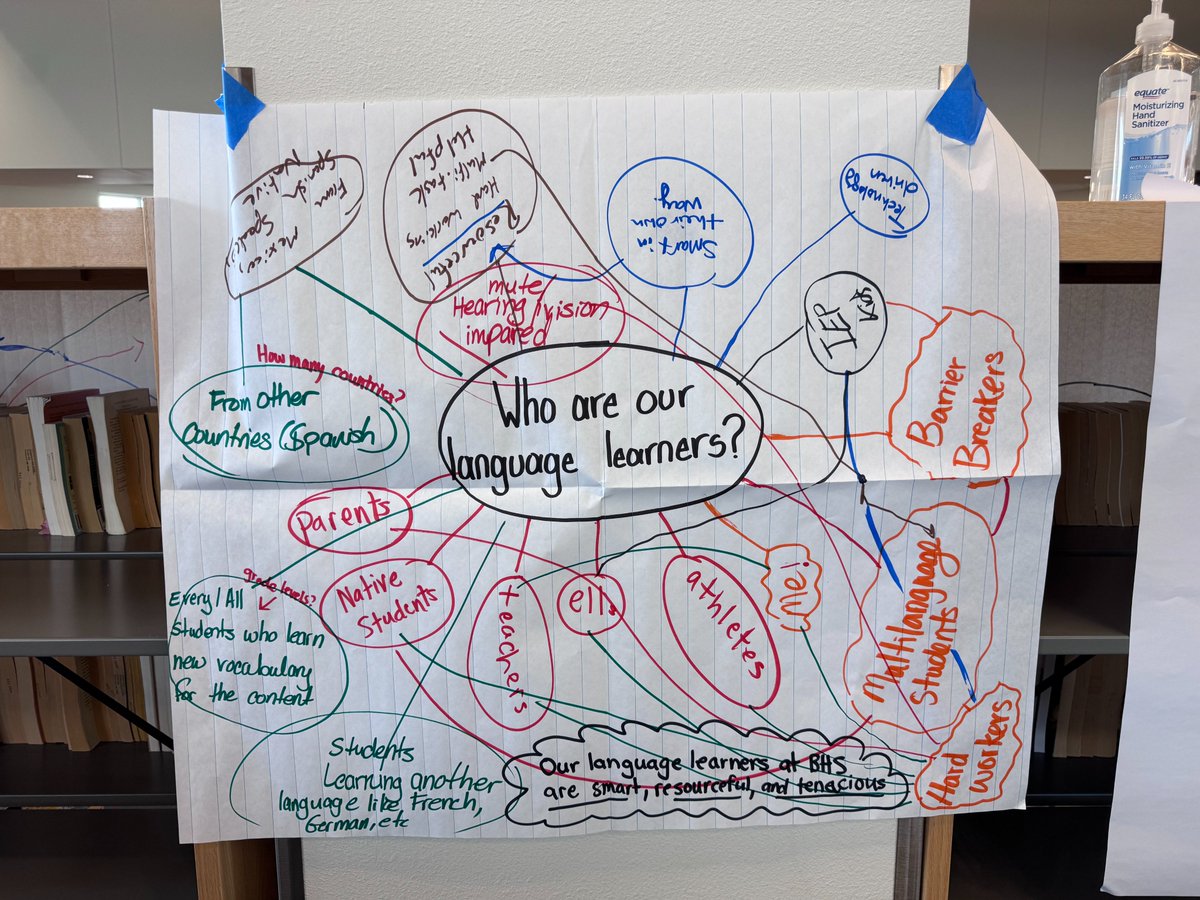 equate
Moisturizing
Hand
Sanitizer
From
Mexico
Spanish
Native
Speakers
Resourceful
Hard working
Multi-task
Helpful
Smart in
their own
way.
Technology
driven
IEP
mute/
Hearing/vision
impared
Barrier
Breakers
How many countries?
From Other
Countries (Spanish
Who are our
language learners?
parents
grade levels?
Every/All
Students who learn
new vocabulary
for the content
Native
Students
teachers
ell.
athletes
Me!
Multilanguage
Students
Hard
workers
Students
Learning another
language like French,
German, etc
Our language learners at BHS
are smart, resourceful, and tenacious